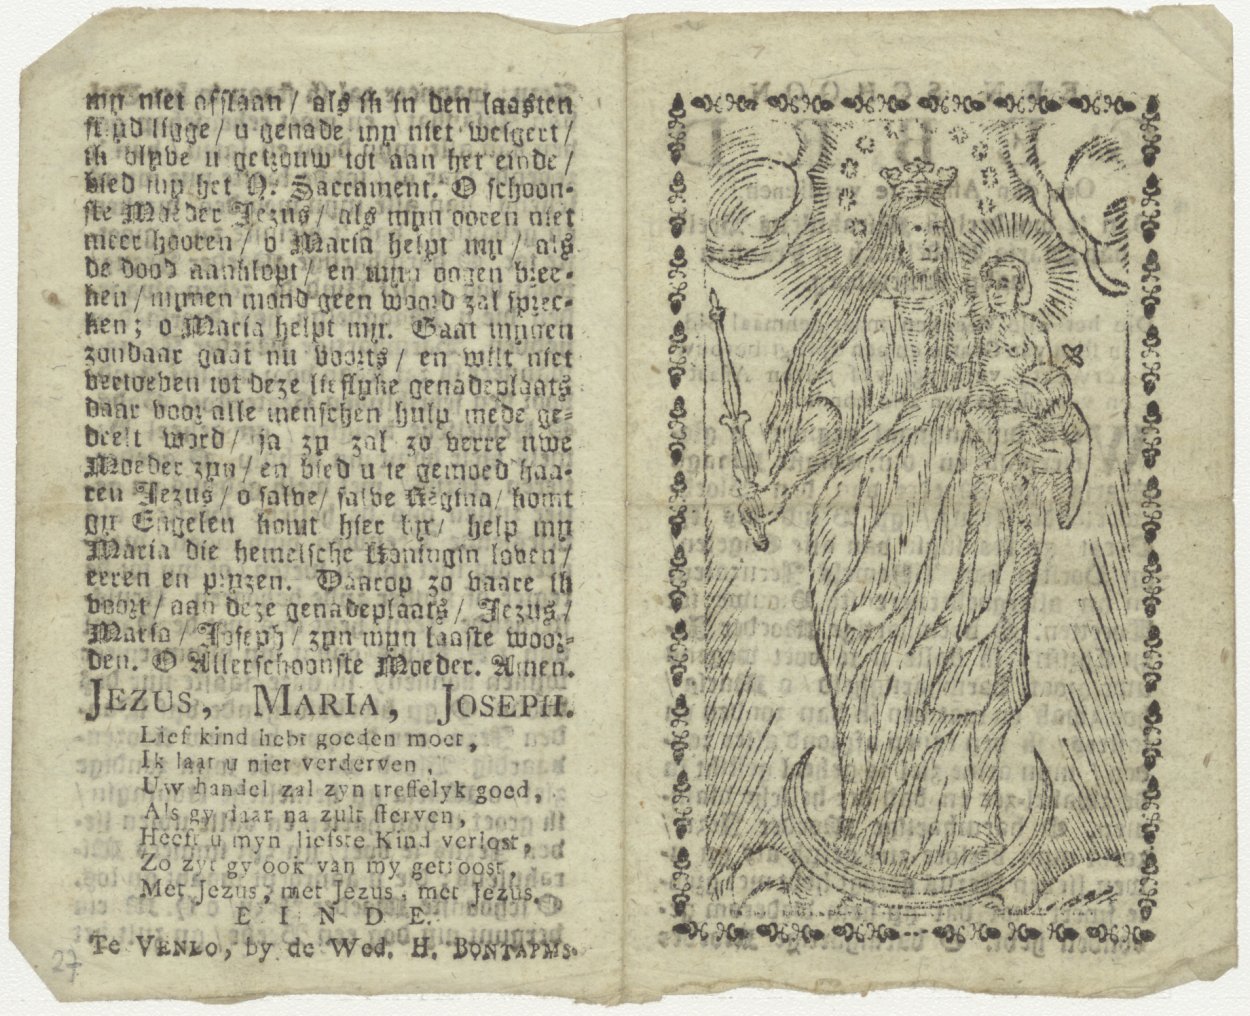 myn niet afslaan / als ik in den laasten
stryd ligge / u genade myn niet weigert /
ik blyve u getrouw tot aan het einde /
bied myn het H. Sacrament. O schoon-
ste Maeder Jezus / als myn ooren niet
meer hooren / ô Maria helpt my / als
de dood aanklopt / en myn oogen bree-
ken / mynen mond geen woord zal spree-
ken; o Maria helpt my. Gaat mynen
zondaar gaat nu voorts / en wilt niet
vertoeven tot deze lieflyke genadeplaats
daar voor alle menschen hulp mede ge-
deelt word / ja zy zal zo verre uwe
Moeder zyn / en bied u te gemoed haa-
ren Jezus / o salve / salve Regina / komt
gy Engelen komt hier by / help my
Maria die hemelsche Koningin loven /
eeren en pryzen. Daarop zo vaare ik
voort / aan deze genadeplaats / Jezus /
Maria / Joseph / zyn myn laaste woor-
den. O Allerschoonste Moeder. Amen.
JEZUS, MARIA, JOSEPH.
Lief kind hebt goeden moet,
Ik laat u niet verderven,
Uw handel zal zyn treffelyk goed,
Als gy daar na zult sterven,
Heeft u myn liefste Kind verlost,
Zo zyt gy ook van my getroost,
Met Jezus, met Jezus, met Jezus.
EINDE.
Te VENLO, by de Wed. H. BONTAPMS.
27